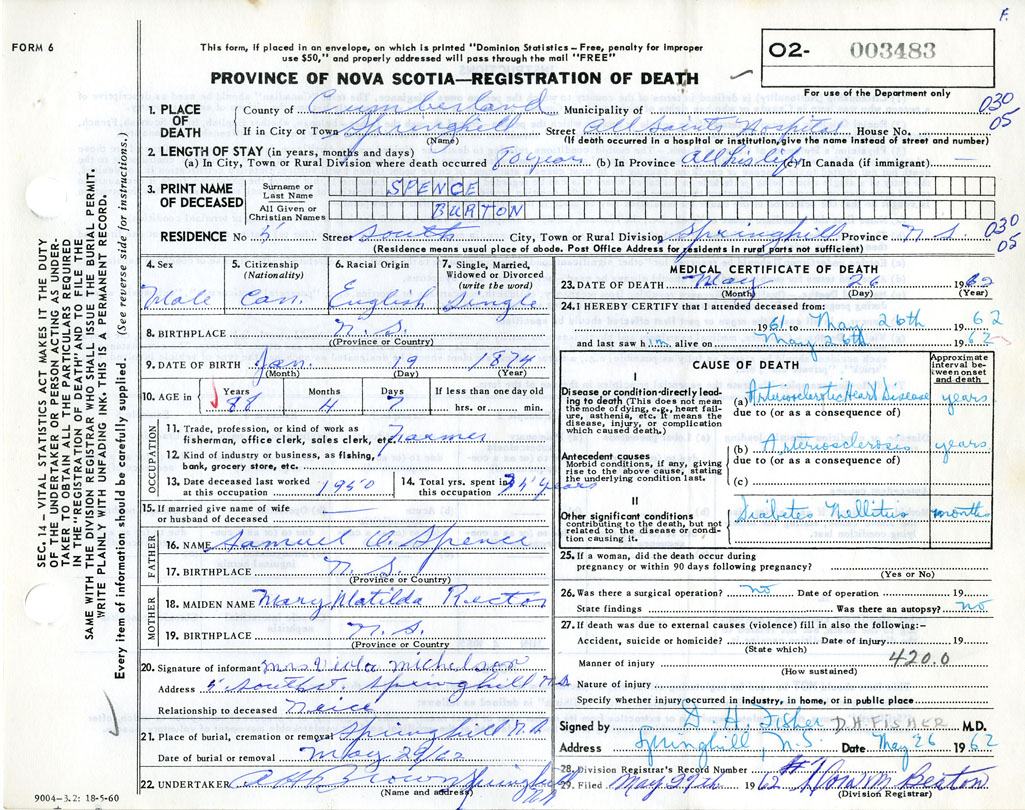 F.
FORM 6
This form, if placed in an envelope, on which is printed "Dominion Statistics – Free, penalty for improper
use $50," and properly addressed will pass through the mail "FREE"
O2- 003483
PROVINCE OF NOVA SCOTIA—REGISTRATION OF DEATH
For use of the Department only
1. PLACE OF DEATH
County of Cumberland Municipality of
030
05
If in City or Town Springhill Street All Saints Hospital House No.
(Name) (If death occurred in a hospital or institution, give the name instead of street and number)
2. LENGTH OF STAY (in years, months and days)
(a) In City, Town or Rural Division where death occurred 80 years (b) In Province All his life (c) In Canada (if immigrant) —
3. PRINT NAME OF DECEASED
Surname or Last Name SPENCE
All Given or Christian Names BURTON
RESIDENCE No 5 Street South City, Town or Rural Division Springhill Province N S.
030
05
(Residence means usual place of abode. Post Office Address for residents in rural parts not sufficient)
4. Sex
Male
5. Citizenship
(Nationality)
Can.
6. Racial Origin
English
7. Single, Married,
Widowed or Divorced
(write the word)
Single
8. BIRTHPLACE N.S.
(Province or Country)
9. DATE OF BIRTH Jan. 19 1874
(Month) (Day) (Year)
10. AGE in
Years 88
Months 4
Days 7
If less than one day old
hrs. or min.
OCCUPATION
11. Trade, profession, or kind of work as
fisherman, office clerk, sales clerk, etc. Farmer
12. Kind of industry or business, as fishing,
bank, grocery store, etc.
13. Date deceased last worked
at this occupation 1950
14. Total yrs. spent in
this occupation 35 years
15. If married give name of wife
or husband of deceased —
FATHER
16. NAME Samuel Spence
17. BIRTHPLACE N.S.
(Province or Country)
MOTHER
18. MAIDEN NAME Mary Matilda Rector
19. BIRTHPLACE N.S.
(Province or Country)
20. Signature of informant Mrs Viola Michelson
Address 5 South St. Springhill N.S
Relationship to deceased Neice
21. Place of burial, cremation or removal Springhill N.S
Date of burial or removal May 29/62
22. UNDERTAKER Brown Springhill N.S
(Name and address)
9004-3.2: 18-5-60
MEDICAL CERTIFICATE OF DEATH
23. DATE OF DEATH May 26 1962
(Month) (Day) (Year)
24. I HEREBY CERTIFY that I attended deceased from:
1961 to May 26th 1962
and last saw him alive on May 26th 1962
CAUSE OF DEATH
Approximate
interval between
onset
and death
I
Disease or condition directly leading to death (This does not mean
the mode of dying, e.g., heart failure, asthenia, etc. It means the
disease, injury, or complication
which caused death.)
(a) Arteriosclerotic Heart Disease years
due to (or as a consequence of)
Antecedent causes
Morbid conditions, if any, giving
rise to the above cause, stating
the underlying condition last.
(b) Arteriosclerosis years
due to (or as a consequence of)
(c)
II
Other significant conditions
contributing to the death, but not
related to the disease or condition causing it.
Diabetes Mellitus months
25. If a woman, did the death occur during
pregnancy or within 90 days following pregnancy?
(Yes or No)
26. Was there a surgical operation? no Date of operation 19
State findings Was there an autopsy? no
27. If death was due to external causes (violence) fill in also the following:–
Accident, suicide or homicide? Date of injury 19
(State which)
420.0
Manner of injury
(How sustained)
Nature of injury
Specify whether injury occurred in industry, in home, or in public place
Signed by D. H. Fisher D.H. FISHER M.D.
Address Springhill, N.S. Date May 26 1962
28. Division Registrar's Record Number #9
29. Filed May 29th 1962 Beaton
(Division Registrar)
SEC. 14 – VITAL STATISTICS ACT MAKES IT THE DUTY
OF THE UNDERTAKER OR PERSON ACTING AS UNDERTAKER TO OBTAIN ALL THE PARTICULARS REQUIRED
IN THE "REGISTRATION OF DEATH" AND TO FILE THE
SAME WITH THE DIVISION REGISTRAR WHO SHALL ISSUE THE BURIAL PERMIT.
WRITE PLAINLY WITH UNFADING INK. THIS IS A PERMANENT RECORD.
Every item of information should be carefully supplied. (See reverse side for instructions.)